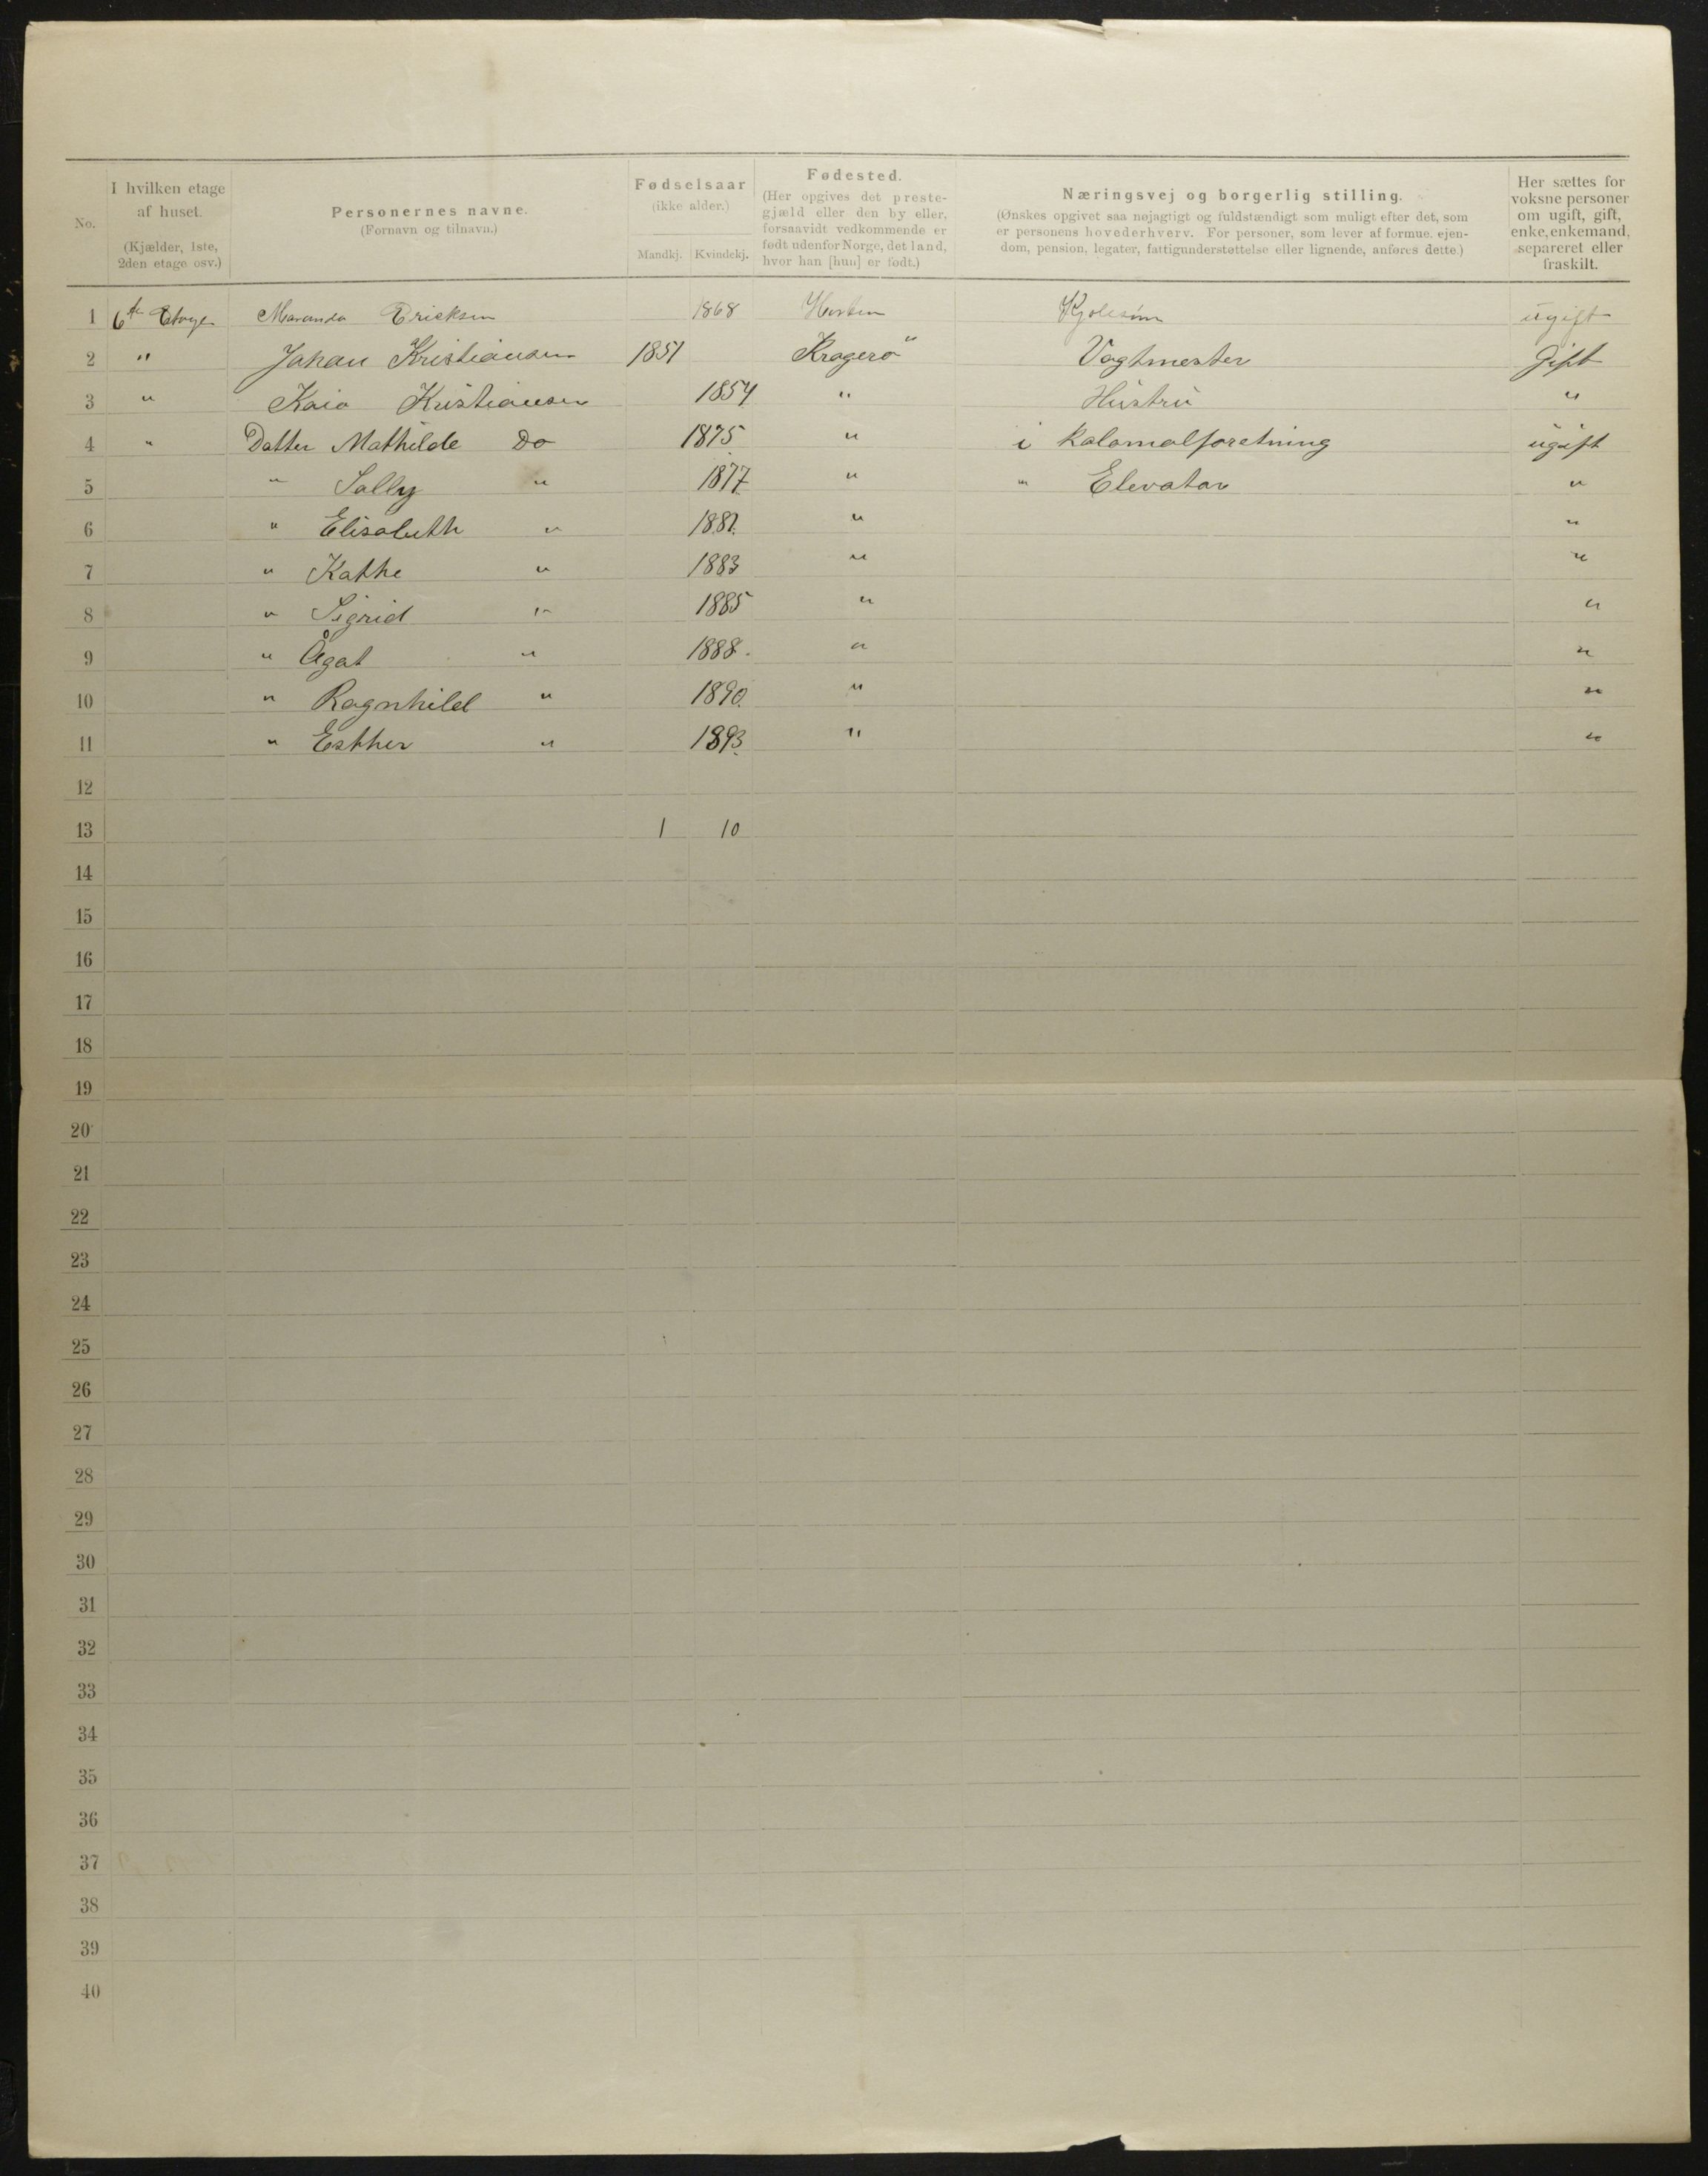 No. I hvilken etage af huset. (Kjælder, 1ste, 2den etage osv.) Personernes navne. (Fornavn og tilnavn.) Fødselsaar (ikke alder.) Mandkj. Kvindekj. Fødested. (Her opgives det prestegjæld eller den by eller, forsaavidt vedkommende er født udenfor Norge, det land, hvor han [hun] er født.) Næringsvej og borgerlig stilling. (Ønskes opgivet saa nøjagtigt og fuldstændigt som muligt efter det, som er personens hovederhverv. For personer, som lever af formue, ejendom, pension, legater, fattigunderstøttelse eller lignende, anføres dette.) Her sættes for voksne personer om ugift, gift, enke, enkemand, separeret eller fraskilt.
1 6te Etage Maranda Ericksen 1868 Horten ugift
2 " Johan Kristiansen 1851 Kragerö Vagtmester Gift
3 " Kaia Kristiansen 1854 " Hustru "
4 " Datter Mathilde Do 1875 " i Kalamalforetning ugift
5 " Sally " 1877 " " Elevator "
6 " Elisabeth " 1881. " "
7 " Kathe " 1883 " "
8 " Sigrid " 1885 " "
9 " Ågat " 1888. " "
10 " Ragnhild " 1890. " "
11 " Esther " 1893. " "
12
13 1 10
14
15
16
17
18
19
20
21
22
23
24
25
26
27
28
29
30
31
32
33
34
35
36
37
38
39
40